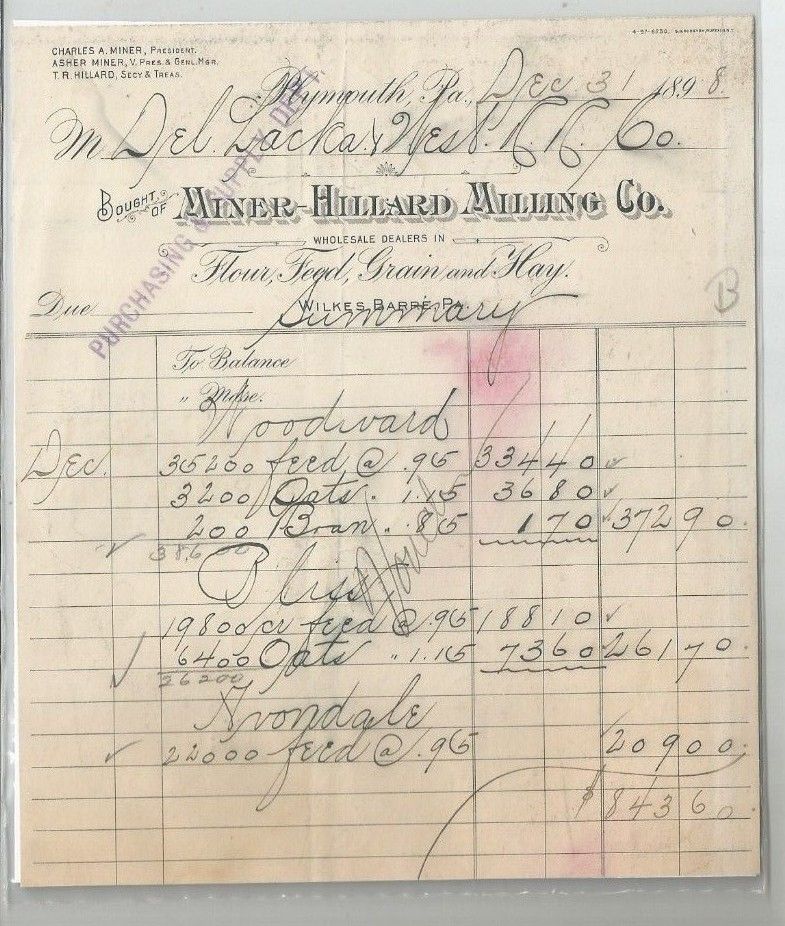 4-97-6230.
CHARLES A. MINER, PRESIDENT.
ASHER MINER, V. PRES. & GENL. MGR.
T. R. HILLARD, SECY & TREAS.
Plymouth, Pa., Dec 31 1898.
M Del. Lacka & West. R. R. Co.
BOUGHT OF MINER-HILLARD MILLING CO.
WHOLESALE DEALERS IN
Flour, Feed, Grain and Hay.
Due WILKES BARRÉ, PA.
Summary
B
PURCHASING & SUPPLY DEPT.
To Balance
" Mdse.
Woodward
Dec. 35200 feed @ .95 334 40
3200 Oats . 1.15 36 80
200 Bran " .85 1 70 372 90
386
Bliss
19800 cr feed @ .95 188 10
6400 Oats " 1.15 73 60 261 70
26200
Avondale
22000 feed @ .95 209 00
$ 843 60